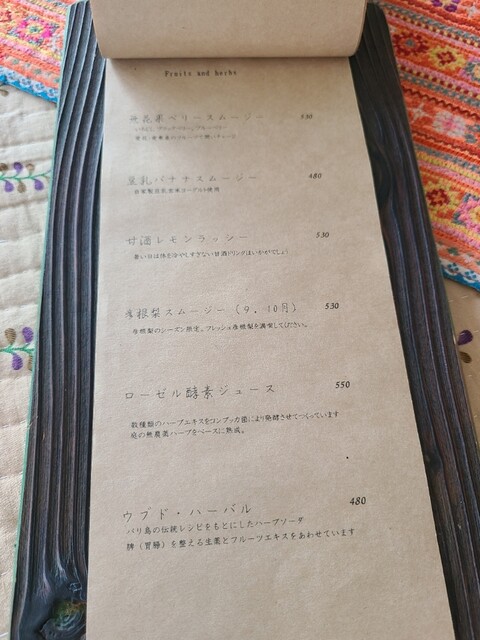 Fruits and herbs
無花果ベリースムージー 530
豆乳バナナスムージー 480
自家製豆乳玄米ヨーグルト使用
甘酒レモンラッシー 530
暑い日は体を冷やしすぎない甘酒ドリンクはいかがでしょう
彦根梨スムージー (9, 10月) 530
彦根梨のシーズン限定。フレッシュ彦根梨を満喫してください。
ローゼル酵素ジュース 550
数種類のハーブエキスをコンブッカ菌により発酵させてつくっています
庭の無農薬ハーブをベースに熟成。
ウブド・ハーバル 480
バリ島の伝統レシピをもとにしたハーブソーダ
脾(胃腸)を整える生薬とフルーツエキスをあわせています